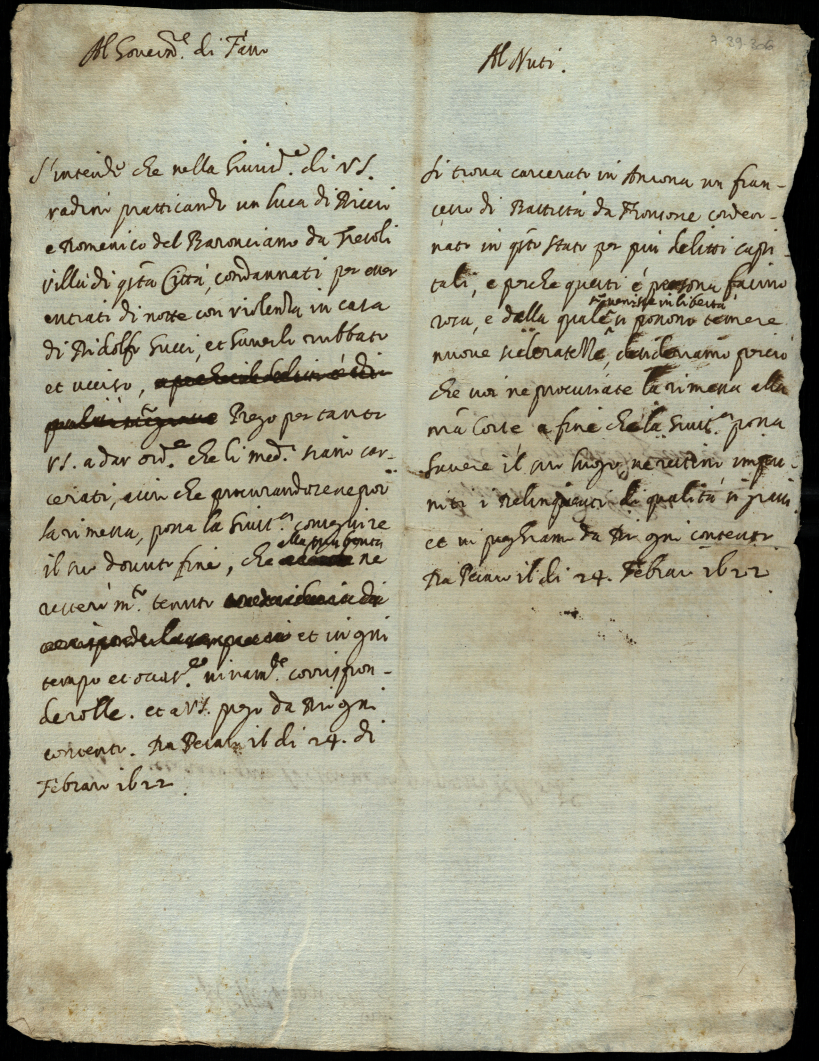 Al Govern.re di Fano
S'intende che nella Giurid.e di VS.
vadini pratticando un Luca di Riccio
e Domenico del Baronciano da
villa di q.sta Città, condannati per esser
entrati di notte con violenza in casa
di Ridolfo Succi, et haverlo rubbato
et ucciso,
Prego per tanto
VS. a dar ord.e che li med.i siano car-
cerati, acciò che procurandosene poi
la rimessa, possa la Giust.a conseguire
il suo dovuto fine, che alla sua bontà ne
resterò m.to tenuto
et in ogni
tempo et occas.ne
corrispon-
derolle. et a VS. prego da Dio ogni
contento. Da Pesaro il dì 24. di
Febraro 1622
Al Nuti.
Si trova carcerato in Ancona un Fran-
cesco di Battista da condan-
nato in q.sto stato per più delitti capi-
tali, e perche questi è persona facino
rosa, e dalla quale se venisse in libertà si ponono temere
nuove sceleratezze, desideriamo perciò
che voi ne procuriate la rimessa alla
n.ra Corte a fine che la Giust.a possa
havere il suo luogo, ne restino impu-
niti i delinquenti di qualità sì gravi.
et vi preghiamo da Dio ogni contento
Da Pesaro il dì 24. Febraro 1622.